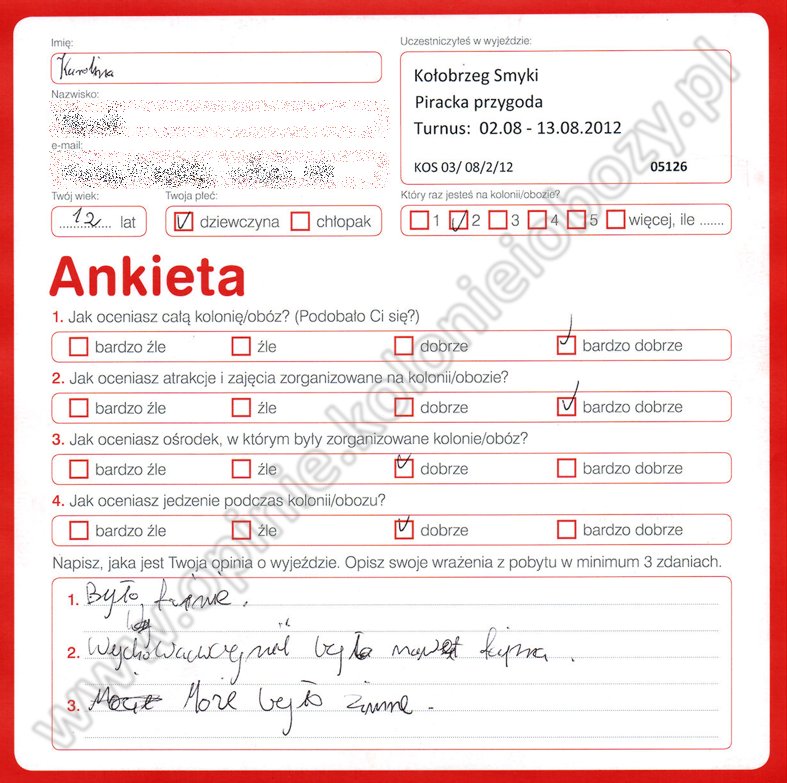 Imię:
Uczestniczyłeś w wyjeździe:
Karolina
Kołobrzeg Smyki
Piracka przygoda
Turnus: 02.08 - 13.08.2012
KOS 03/ 08/2/12 05126
Nazwisko:
e-mail:
Twój wiek: Twoja płeć: Który raz jesteś na kolonii/obozie?
12 lat dziewczyna chłopak 1 2 3 4 5 więcej, ile .......
Ankieta
1. Jak oceniasz całą kolonię/obóz? (Podobało Ci się?)
bardzo źle źle dobrze bardzo dobrze
2. Jak oceniasz atrakcje i zajęcia zorganizowane na kolonii/obozie?
bardzo źle źle dobrze bardzo dobrze
3. Jak oceniasz ośrodek, w którym były zorganizowane kolonie/obóz?
bardzo źle źle dobrze bardzo dobrze
4. Jak oceniasz jedzenie podczas kolonii/obozu?
bardzo źle źle dobrze bardzo dobrze
Napisz, jaka jest Twoja opinia o wyjeździe. Opisz swoje wrażenia z pobytu w minimum 3 zdaniach.
1. Było fajnie.
2. była nawet fajna.
3. Może było zimne.
www.opinie.kolonieiobozy.pl